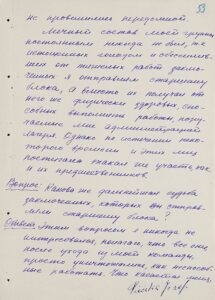 53
не проявляли передомной.
Личный состав моей группы
постоянным никогда не был, т.к.
истощенных голодом и обессилев-
ших от тяжелых работ заклю-
ченных я отправлял старшему
блока, а вместо их получал от
него же физически здоровых, спо-
собных выполнять работы, пору-
чаемые мне администрацией
лагеря. Однако по истечении неко-
торого времени и этих лиц
постигала такая же участь, как
и их предшественников.
Вопрос: Какова же дальнейшая судьба
заключенных, которых Вы отправ-
ляли старшему блока?
Ответ: Этим вопросом я никогда не
интересовался, полагаю, что все они,
после ухода из моей команды,
просто уничтожались, как неспособ-
ные работать. Что касается меня,